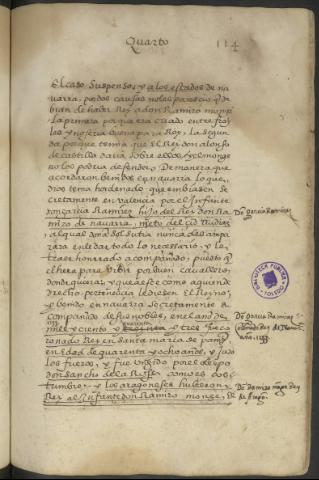 Quarto
114
El caso suspenso, y a los estados de na
uarra, por dos causas no les parescio q̃ de
bian de hazer Rey a don Ramiro monje
la primera porque era criado entre frai
les y no seria bueno para Rey, la segun
da porque temia que el Rey don alonso
de castilla daria sobre ellos y el monge
no los podria defender. De manera que
acordaron de en nauarra lo que
dios tenia hordenado que embiasen se
cretamente en valencia por el Infante
don garcia Ramirez hijo del Rey don Ra
miro de nauarra, nieto del cid Rui diaz
al qual doña sol su tia nunca desampa
raua en dar todo lo necesario, y le
traer honrado acompañado, puesto q̃
el hera para viuir por buen cauallero,
donde quiera, y que a este como a quien de
drecho pertenencia le diesen el Reyno,
y benido en nauarra secretamente a
compañado de sus nobles, en el año de
mil y ciento y treinta y tres fue co
ronado Rey en santa maria de pamp
en edad de quarenta y ocho años, y juro
los fueros, y fue ungido por el obispo
don sancho de la Rosa como es cos
tumbre, y los aragoneses hizieron
Rey al Infante don Ramiro monge,
Don garcia Ramirez
Don garcia Ramirez
Rey de
año, 1133
Don Ramiro monje Rey
de Arago.
BIBLIOTECA PUBLICA
TOLEDO